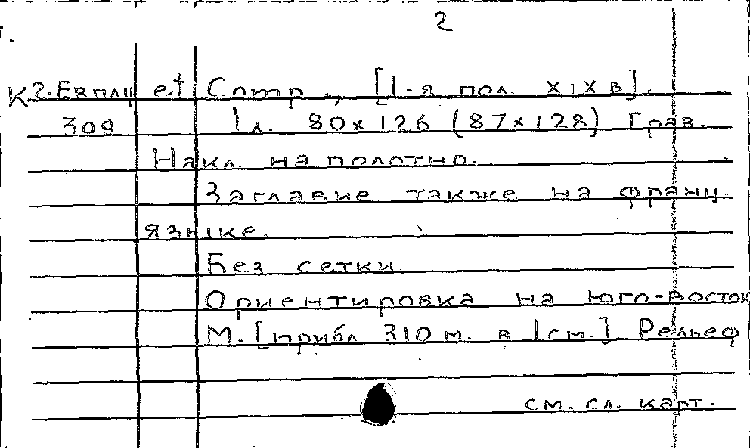 2
К2-Евпли et Comp., [1-я пол. XIX в].
309 1л. 80х126 (87х128) Грав.
Накл. на полотно.
Заглавие также на франц.
языке.
Без сетки.
Ориентировка на юго-восток
М. [прибл 310 м. в 1см.] Рельеф
см. сл. карт.